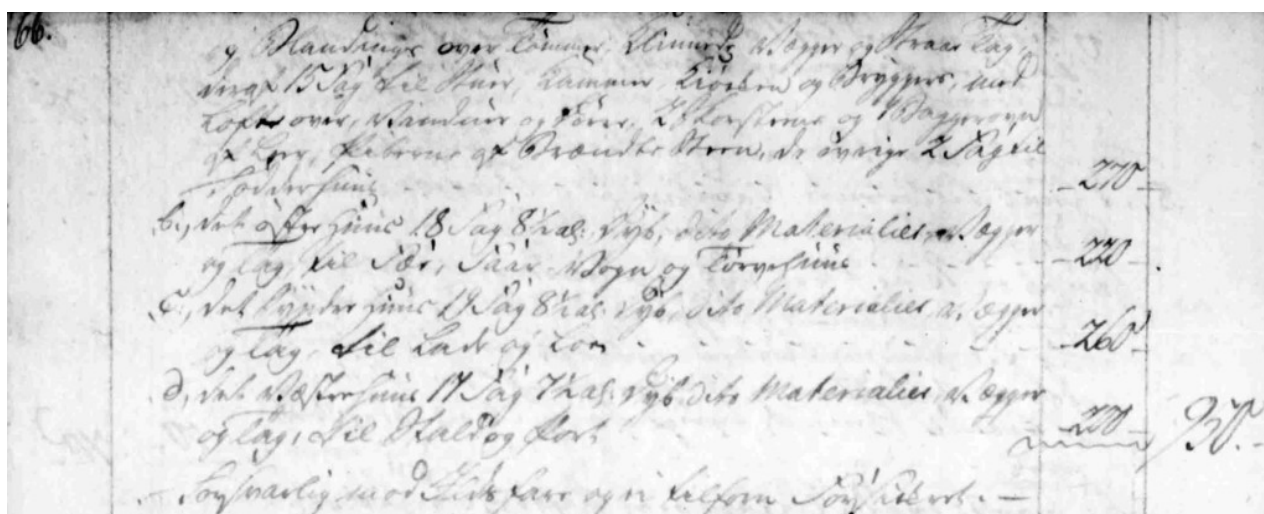 66.
og Blandings over Tømmer, Kliinede Vægger og Straae Tag,
deraf 15 Fag til Stuer, Kammer, Kiøcken og Bryggers, med
Lofte over, Vinduer og Dørre, 2 Skorsteene og 1 Baggerovn
af Leer, Piberne af Brændte Steen, de øvrige 2 Fag til
Fodderhuus - 270 -
b., det Øster Huus 18 Fag 8 Kal: dyb, dito Materialier, Vægger
og Tag, til Faar, Vogn og Tørvehuus - 220 -
C., det Synder Huus 19 Fag 8 Kal: dyb, dito Materialier, Vægger
og Tag, til Lade og Loe - 260 -
d, det Væster Huus 17 Fag 7 Kal: dyb, dito Materialier, Vægger
og Tag, til Stald og Port - 200 - 950. -
- Forsvarlig mod Ilds fare og ei tilforn Forsikret. -